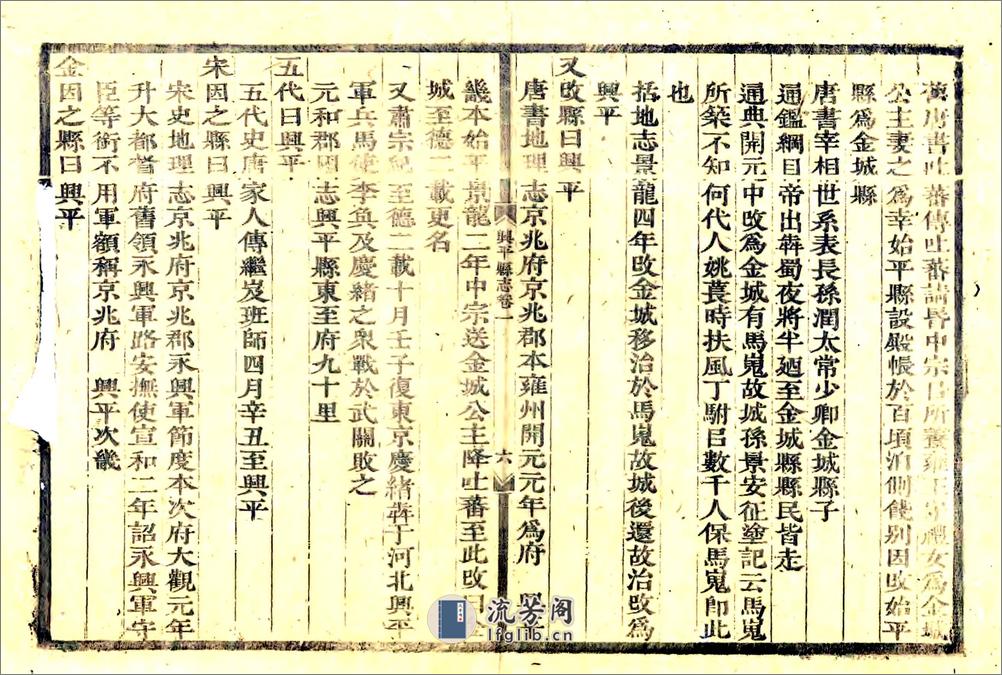 舊唐書吐蕃傳吐蕃請昏中宗㠯所養雍王守禮女爲金城
公主妻之爲幸始平縣設殿帳於百頃泊側餞別因攺始平
縣爲金城縣
唐書宰相世系表長孫潤太常少卿金城縣子
通鑑綱目帝出犇蜀夜將半廼至金城縣縣民皆走
通典開元中攺爲金城有馬嵬故城孫景安征塗記云馬嵬
所築不知何代人姚萇時扶風丁駙㠯數千人保馬嵬卽此
也
括地志景龍四年攺金城移治於馬嵬故城後還故治攺爲
興平
又攺縣曰興平
唐書地理志京兆府京兆郡本雍州開元元年爲府 興
興平縣志卷一
六
畿本始平景龍二年中宗送金城公主降吐蕃至此攺曰
城至德二載更名
又肅宗紀至德二載十月壬子復東京慶緒犇于河北興平
軍兵馬使李奐及慶緒之衆戰於武關敗之
元和郡國志興平縣東至府九十里
五代曰興平
五代史唐家人傳繼岌班師四月辛丑至興平
宋因之縣曰興平
宋史地理志京兆府京兆郡永興軍節度本次府大觀元年
升大都督府舊領永興軍路安撫使宣和二年詔永興軍守
臣等銜不用軍額稱京兆府 興平次畿
金因之縣曰興平
流芳阁
lfglib.cn